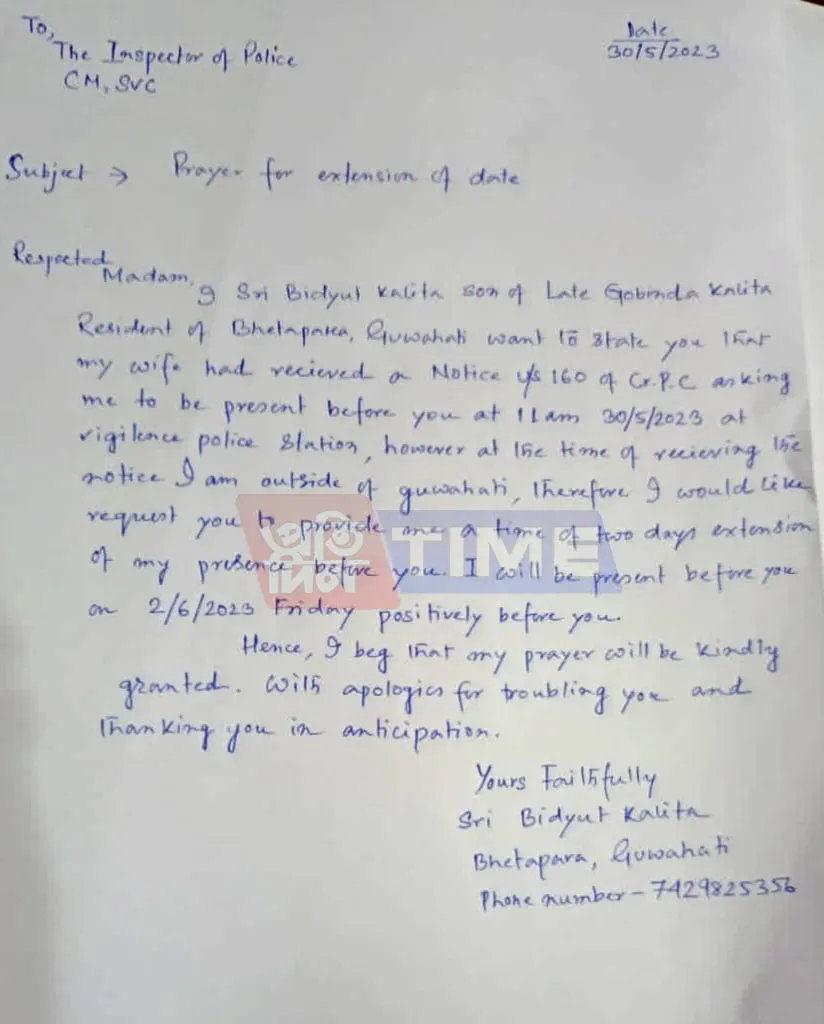 To,
Date
30/5/2023
The Inspector of Police
CM, SVC
Subject → Prayer for extension of date
Respected
Madam,
I Sri Bidyut Kalita son of Late Gobinda Kalita
Resident of Bhetapara, Guwahati want to state you that
my wife had recieved a Notice u/s 160 of Cr.P.C asking
me to be present before you at 11am 30/5/2023 at
vigilence police station, however at the time of recieving the
notice I am outside of guwahati, therefore I would like
request you to provide me a time of two days extension
of my presence before you. I will be present before you
on 2/6/2023 Friday positively before you.
Hence, I beg that my prayer will be kindly
granted. With apologies for troubling you and
thanking you in anticipation.
Yours Faithfully
Sri Bidyut Kalita
Bhetapara, Guwahati
Phone number - 7429825356
TIME